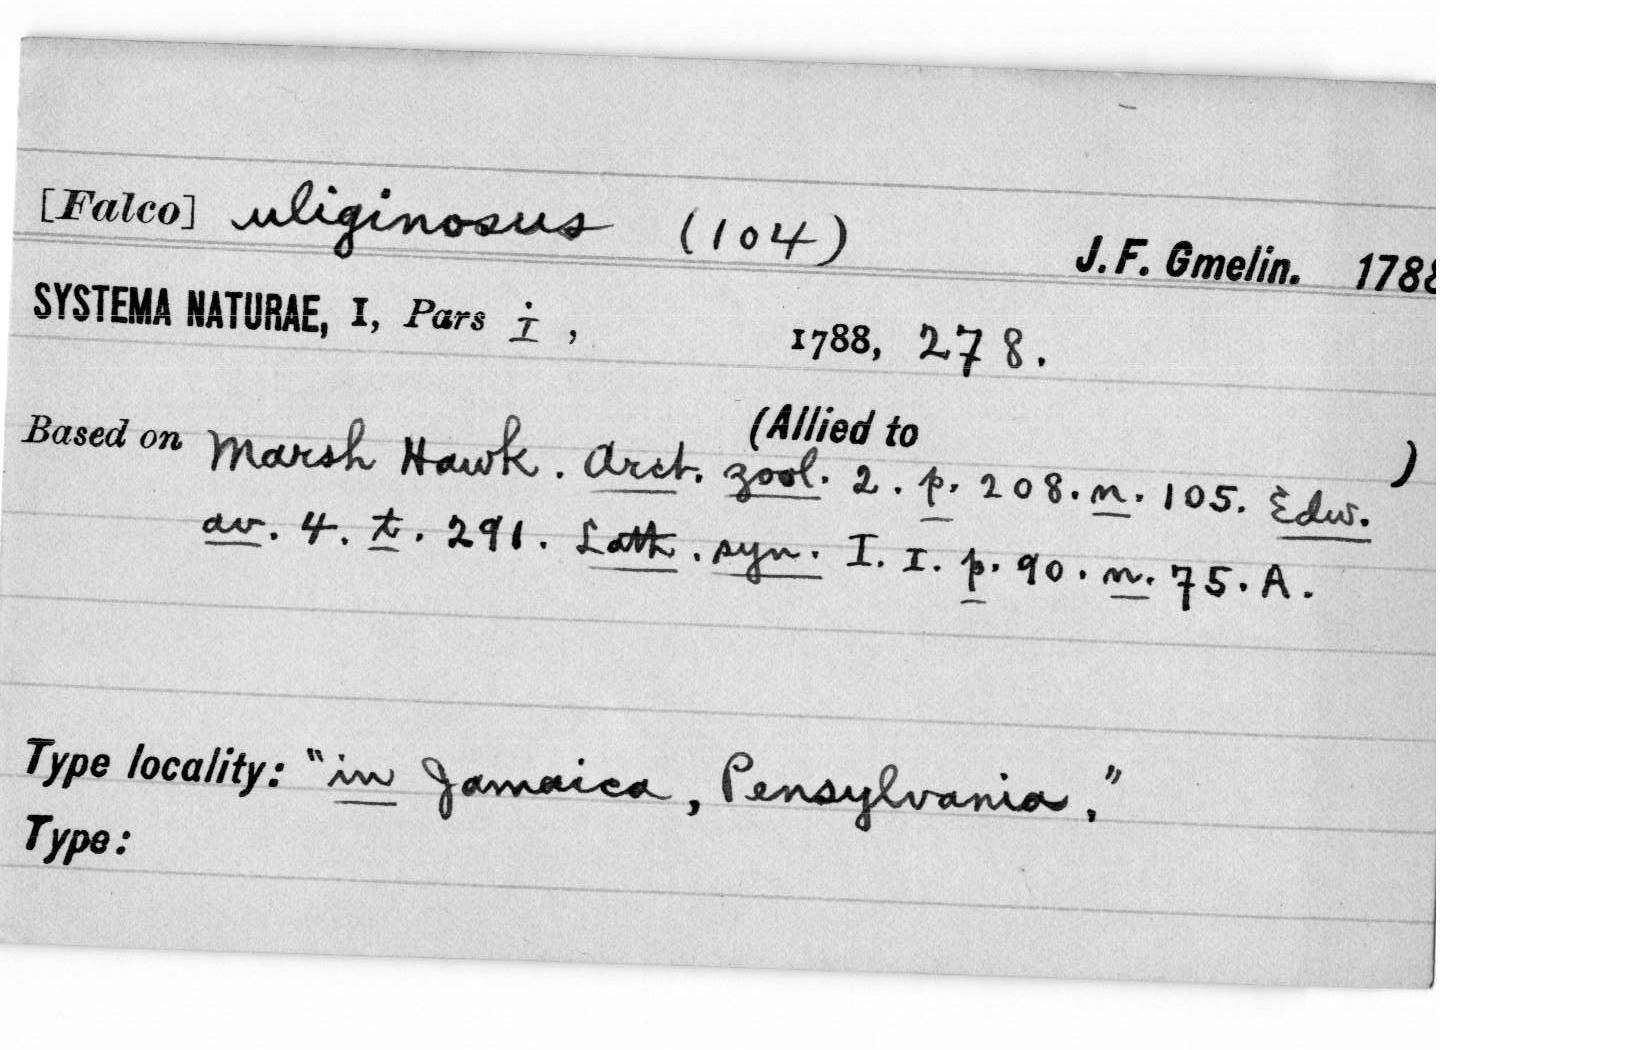 [Falco] uliginosus (104) J. F. Gmelin. 1788
SYSTEMA NATURAE, I, Pars i, 1788, 278.
(Allied to )
Based on Marsh Hawk. Arct. zool. 2. p. 208. n. 105. Edw.
av. 4. t. 291. Lath. syn. I. I. p. 90. n. 75. A.
Type locality: "in Jamaica, Pensylvania."
Type: